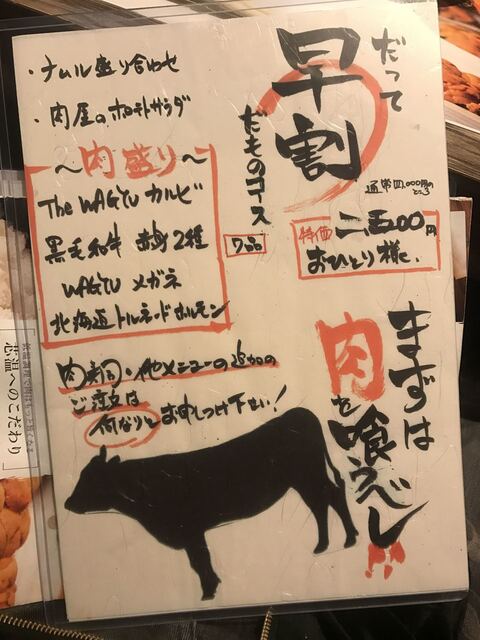 だって
早割
だものコース
7品
通常四,000円の
ところ
特価
二五00円
おひとり様に
・ナムル盛り合わせ
・肉屋のポテトサラダ
〜肉盛り〜
The WAGYU カルビ
黒毛和牛 赤身2種
WAGYU メガネ
北海道トルネードホルモン
肉寿司・他メニューの追加の
ご注文は
何なりとお申しつけ下さい!
まずは
肉を
喰うべし!!
芯温へのこだわり」